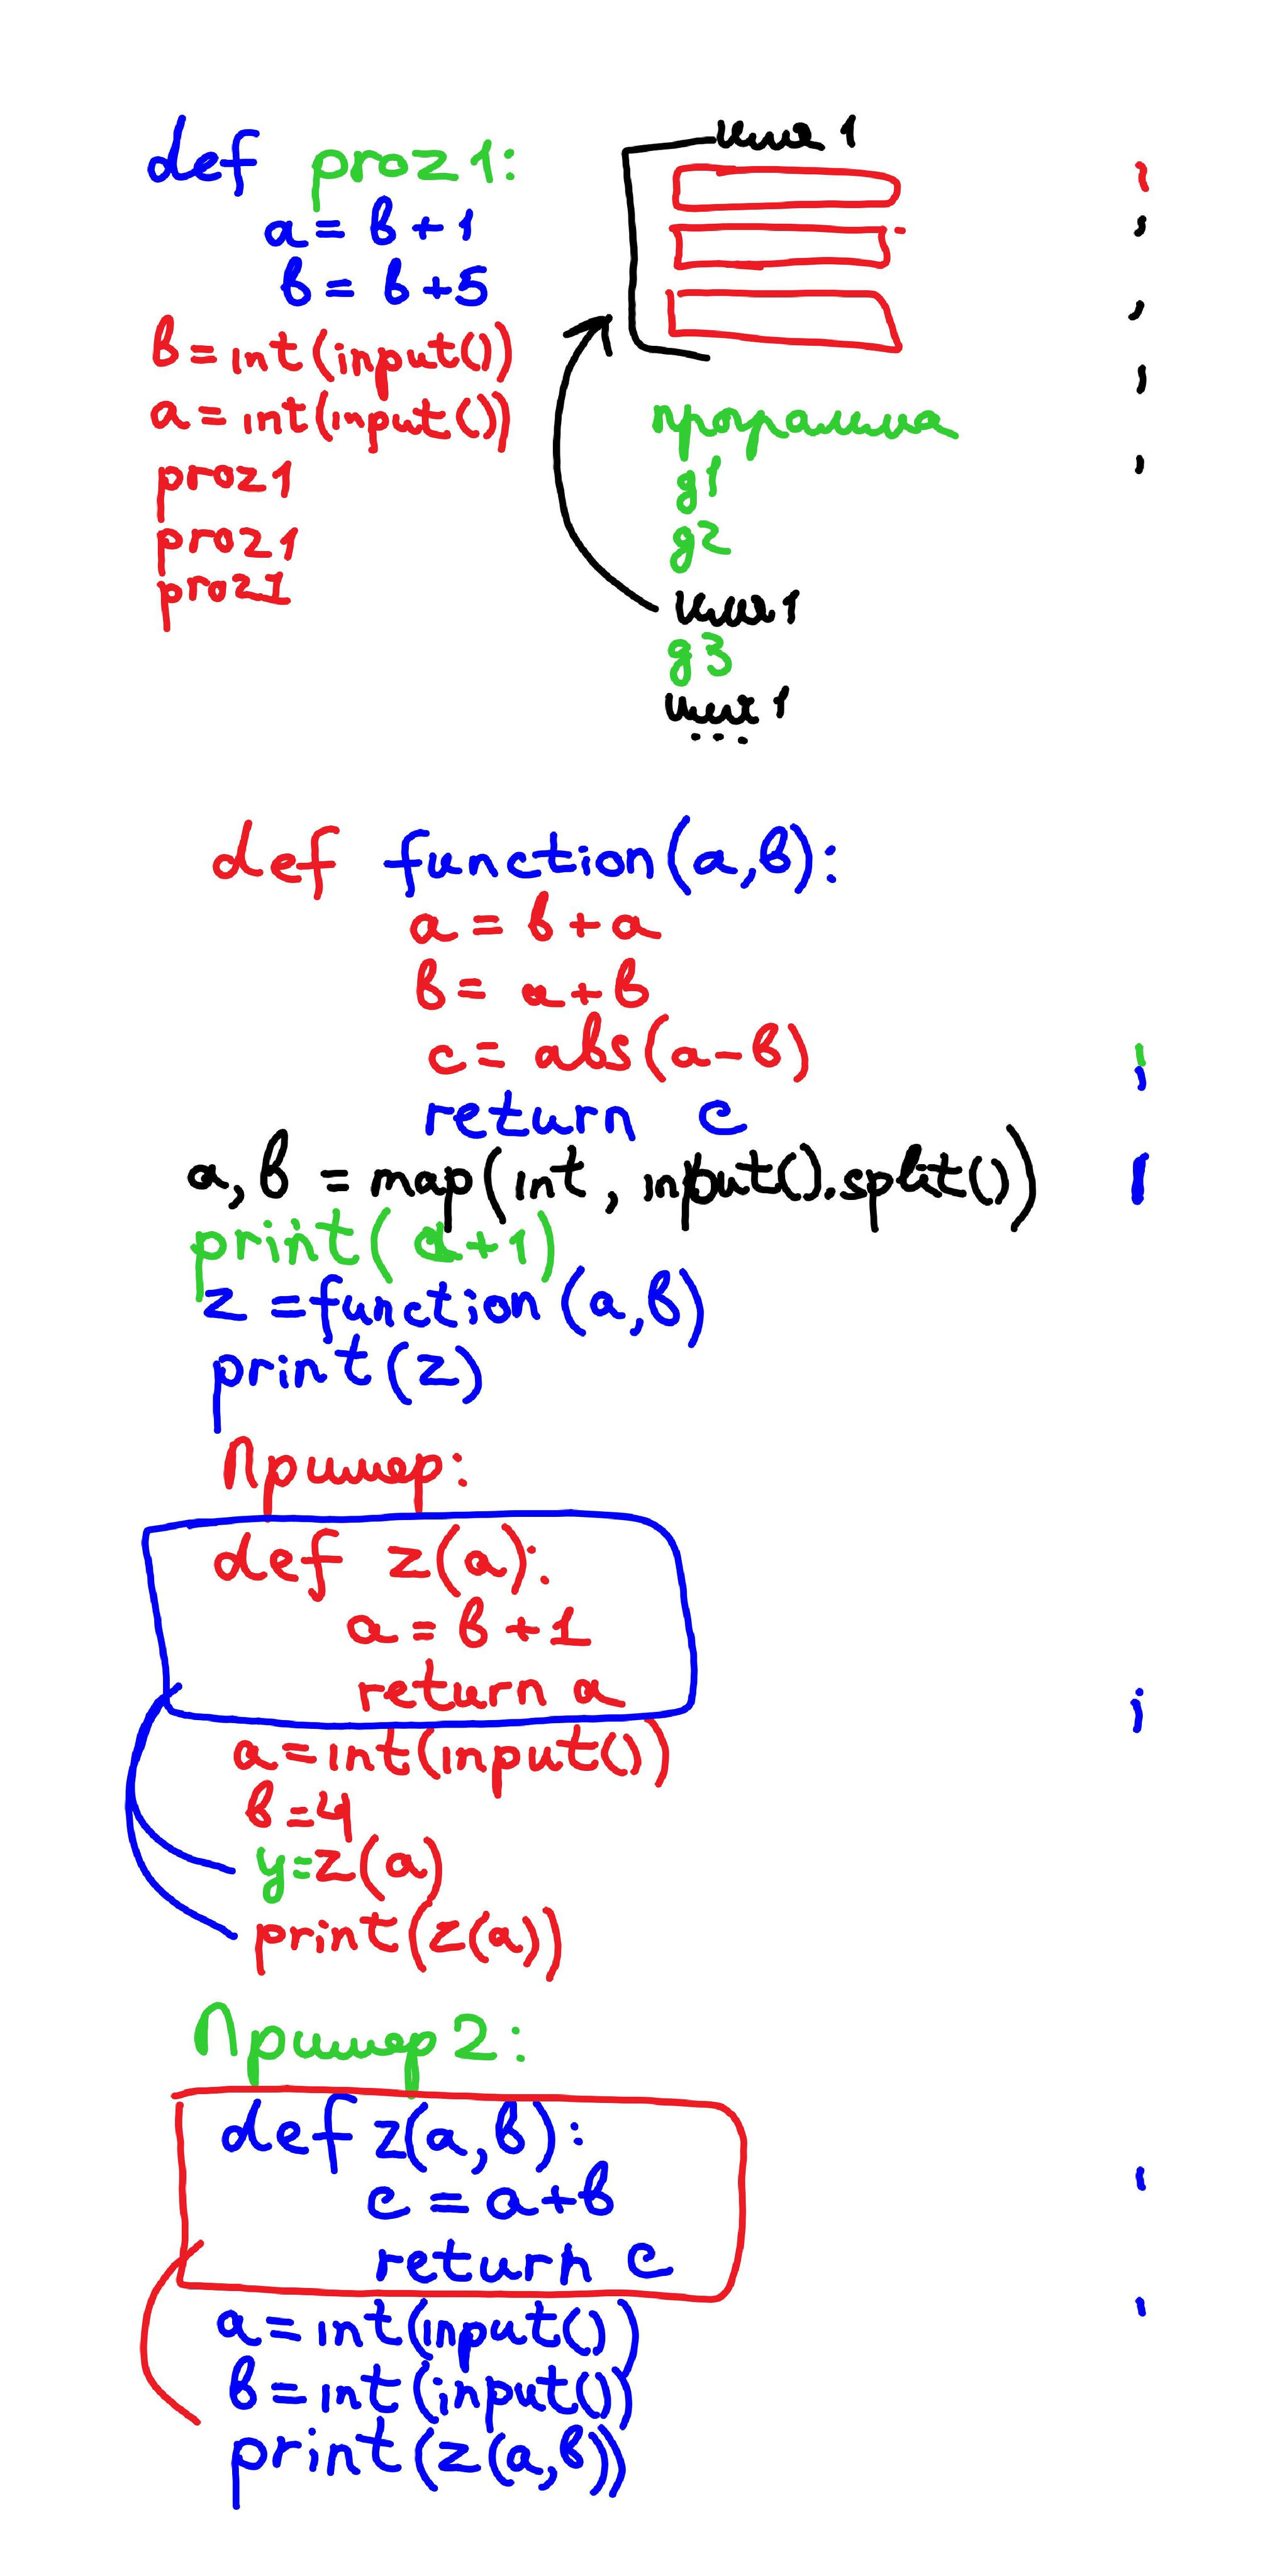 def proz1:
a = в + 1
в = в + 5
в = int(input())
a = int(input())
proz1
proz1
proz1
имя 1
программа
g1
g2
имя 1
g3
имя 1
...
def function(a,в):
a = в + a
в = a + в
c = abs(a - в)
return c
a, в = map(int, input().split())
print(a+1)
z = function(a,в)
print(z)
Пример:
def z(a):
a = в + 1
return a
a = int(input())
в = 4
y = z(a)
print(z(a))
Пример 2:
def z(a,в):
c = a + в
return c
a = int(input())
в = int(input())
print(z(a,в))